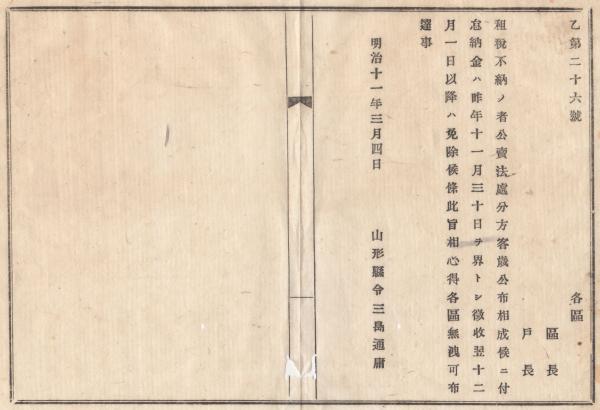 乙第二十六號
各區
區長
戸長
租税不納ノ者公賣法處分方客歲公布相成候ニ付
怠納金ハ昨年十一月三十日ヲ界トシ徴收翌十二
月一日以降ハ免除候條此旨相心得各區無洩可布
達事
明治十一年三月四日
山形縣令三島通庸